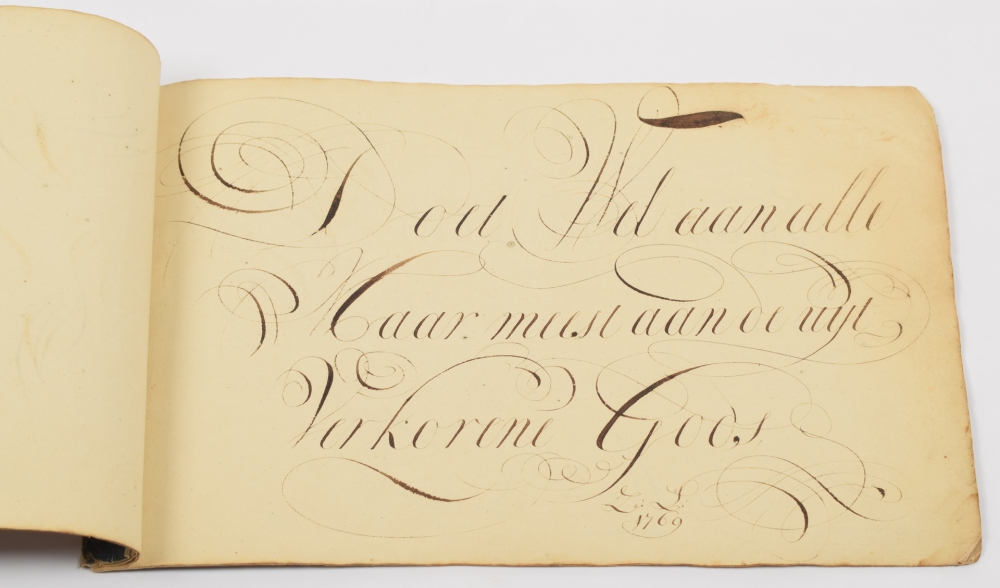 Doet Wel aan alle
Maar meest aan de uijt
Verkorene Gods
1769